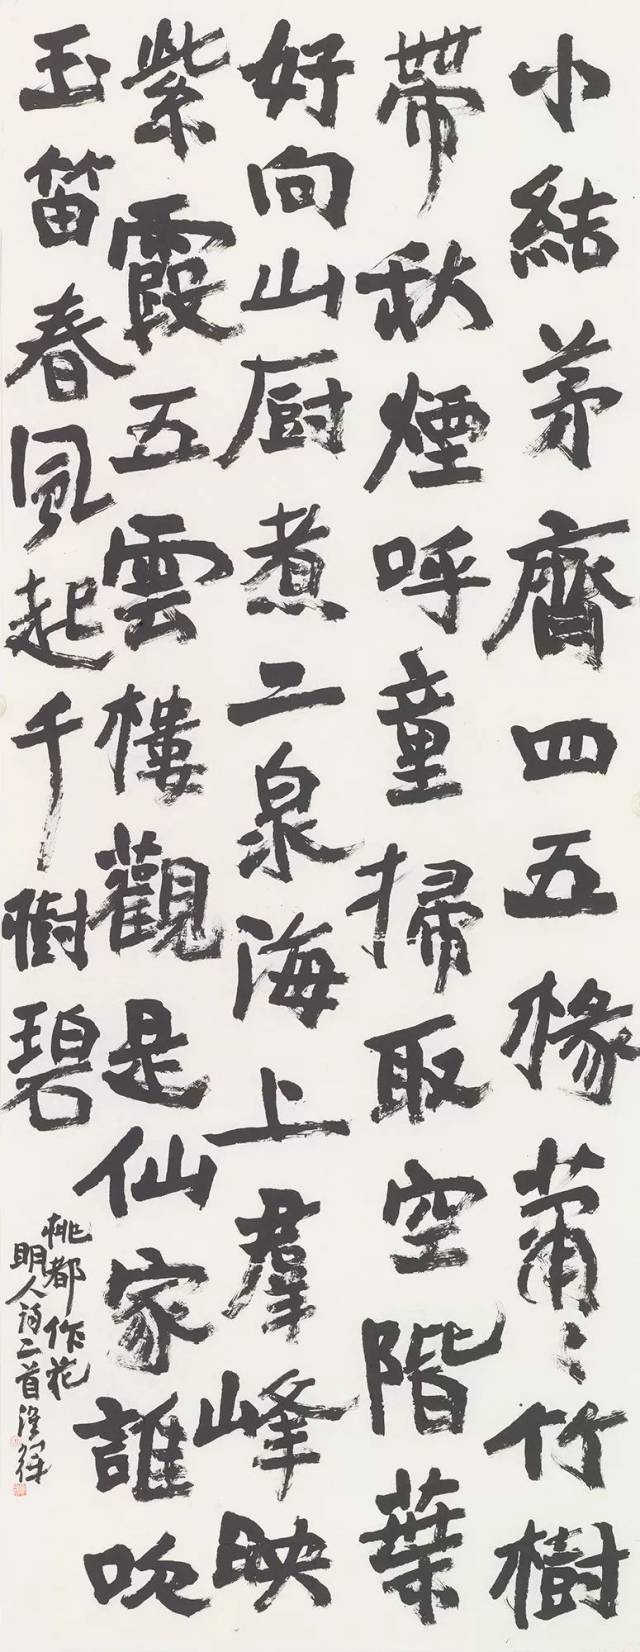 小結茅齊四五椽蕭〻竹樹
帶秋煙呼童掃取空階葉
好向山厨煮二泉海上羣峰映
紫霞五雲樓觀是仙家誰吹
玉笛春風起千樹碧
桃都作花
明人詩二首